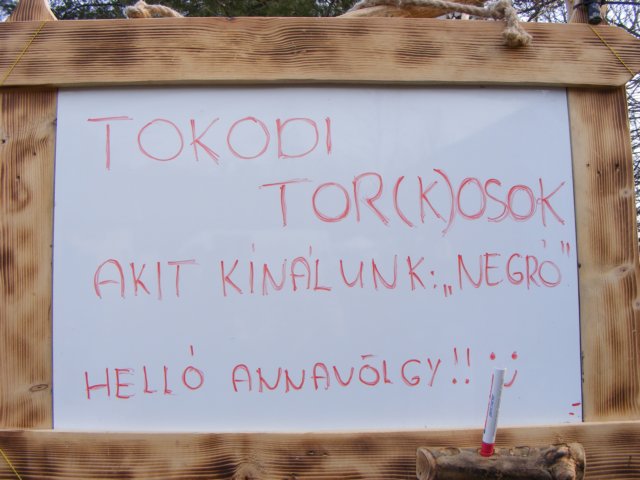 TOKODI
TOR(K)OSOK
AKIT KÍNÁLUNK: „NEGRÓ”
HELLÓ ANNAVÖLGY!! Ü